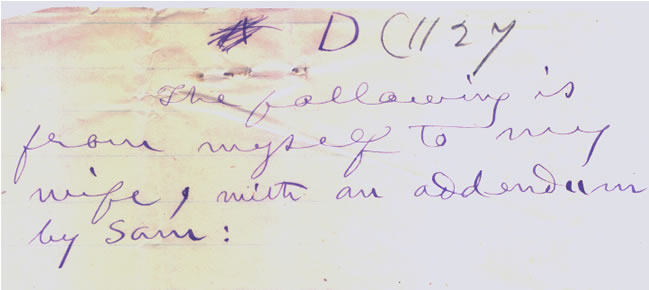 D C1127
The following is
from myself to my
wife, with an addendum
by Sam: